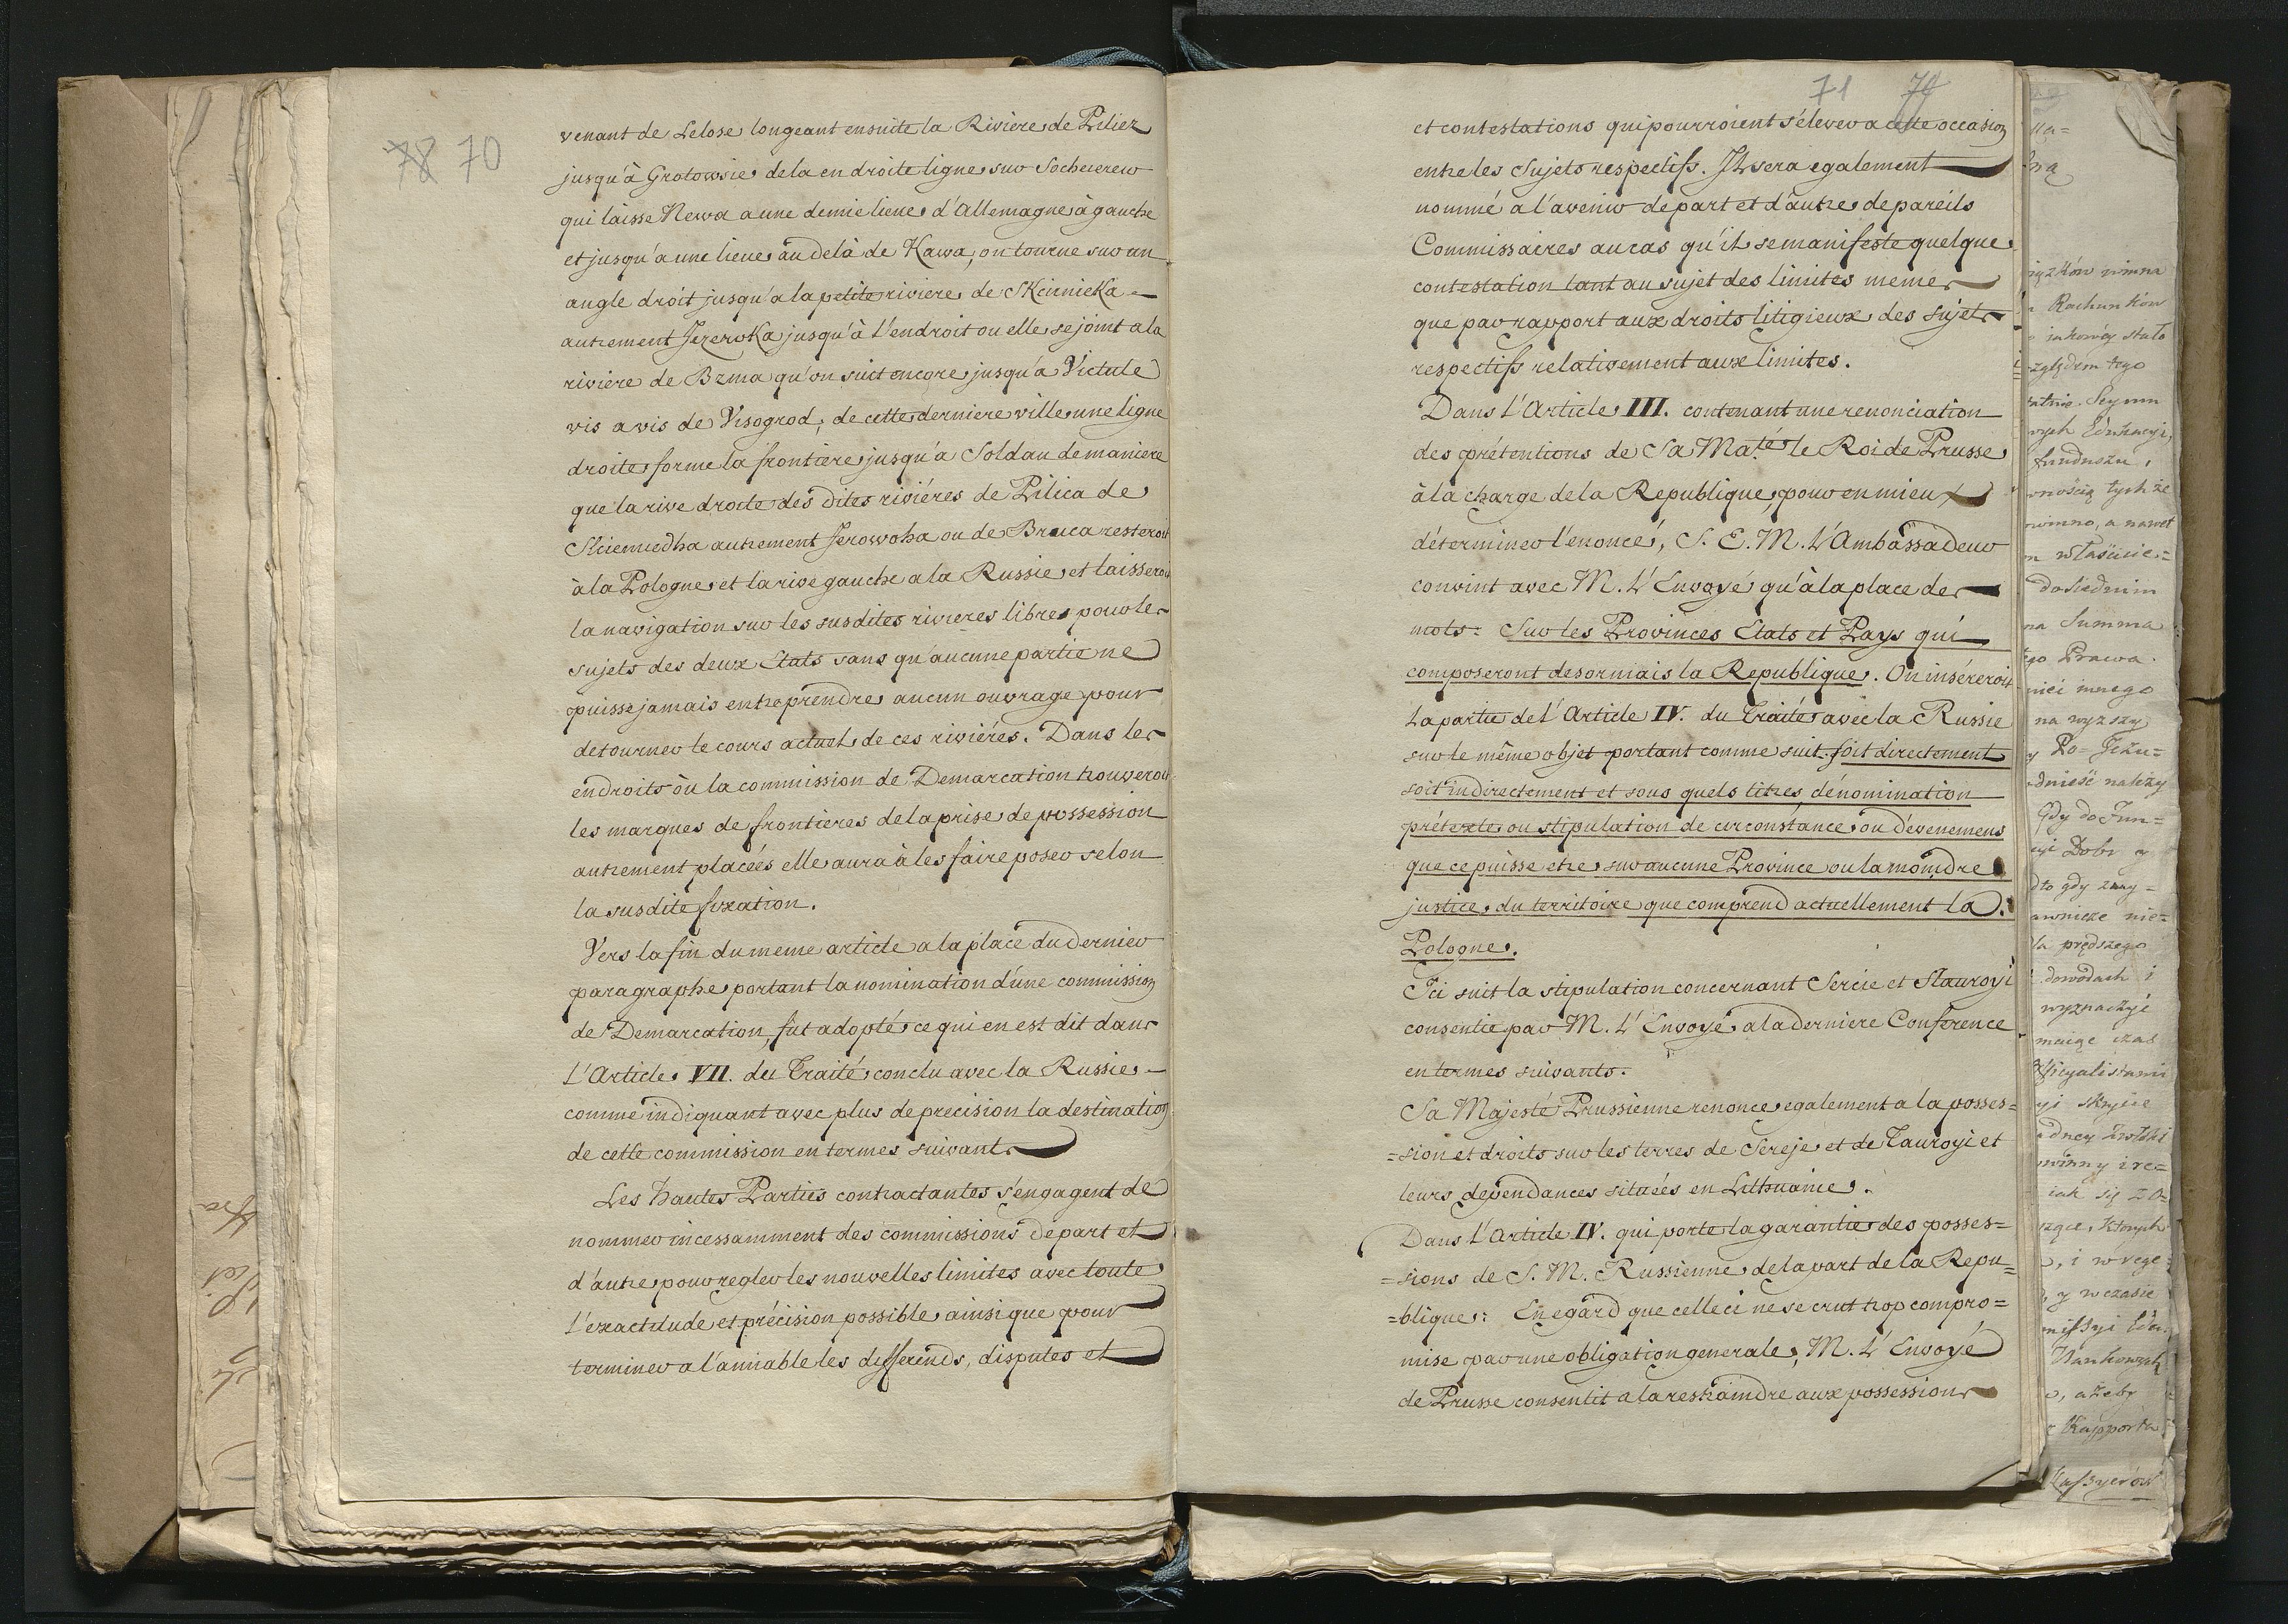 78 70
venant de Lelose longeant ensuite la Riviere de Pilicz
jusqu'à Grotowsie de la en droite ligne sur Socheuerew
qui laisse Newa a une demie lieue d'Allemagne à gauche
et jusqu'a une lieue au delà de Kawa, on tourne sur un
angle droit jusqu'a la petite riviere de SKirnieKa
autrement JezerwKa jusqu'à l'endroit ou elle se joint a la
riviere de Bzma qu'on suit encore jusqu'a Victule
vis a vis de Visogrod; de cette derniere ville une ligne
droite forme la frontiere jusqu'a Soldau de maniere
que la rive droite des dites riviéres de Pilica de
autrement Jerowoha ou de Brauca resteroit
à la Pologne et la rive gauche a la Russie et laisseroit
la navigation sur les susdites rivieres libres pour les
sujets des deux Etats sans qu'aucune partie ne
puisse jamais entreprendre aucun ouvrage pour
detourner le cours actuel de ces riviéres. Dans les
endroits où la commission de Demarcation trouveroit
les marques de frontieres de la prise de possession
autrement placées elle aura à les faire poser selon
la susdite fixation.
Vers la fin du meme article a la place du dernier
paragraphe portant la nomination d'une commission
de Demarcation, fut adopté ce qui en est dit dans
L'Article VII. du Traité conclu avec la Russie
comme indiquant avec plus de precision la destination
de cette commission en termes suivants
Les hautes Parties contractantes s'engagent de
nommer incessamment des commissions de part et
d'autre pour regler les nouvelles limites avec toute
l'exactitude et précision possible ainsi que pour
terminer a l'amiable les differends, disputes et
71 79
et contestations qui pourroient s'élever a cette occasion
entre les Sujets respectifs. Il sera egalement
nommé a l'avenir de part et d'autre de pareils
Commissaires au cas qu'il se manifeste quelque
contestation tant au sujet des limites memes
que par rapport aux droits litigieux des sujets
respectifs relativement aux limites.
Dans L'Article III. contenant une renonciation
des prétentions de Sa Ma.tés le Roi de Prusse
à la charge de la Republique, pour en mieux
déterminer l'enoncé, S. E. M. L'Ambassadeur
convint avec M. L'Envoyé qu'à la place des
mots: Sur les Provinces Etats et Pays qui
composeront desormais la Republique. On inséreroit
La partie de l'Article IV. du Traité avec la Russie
sur le même objet portant comme suit soit directement
soit indirectement et sous quels titres, dénomination
prétexte ou stipulation de circonstance ou d'évenemens
que ce puisse etre sur aucune Province ou la moindre
justice du territoire que comprend actuellement la
Pologne.
Ici suit la stipulation concernant Sereie et Stauroyi
consentie par M. L'Envoyé a la derniere Conference
en termes suivants.
Sa Majesté Prussienne renonce egalement a la posses=
=sion et droits sur les terres de Sereje et de Tauroyi et
leurs dependances situées en Lithuanie.
Dans l'Article IV. qui porte la garantie des posses=
=sions de S. M. Russienne de la part de la Repu=
=blique: En egard que celle ci ne se crut trop compro=
mise par une obligation generale, M. L'Envoyé
de Prusse consentit a la restraindre aux possessions